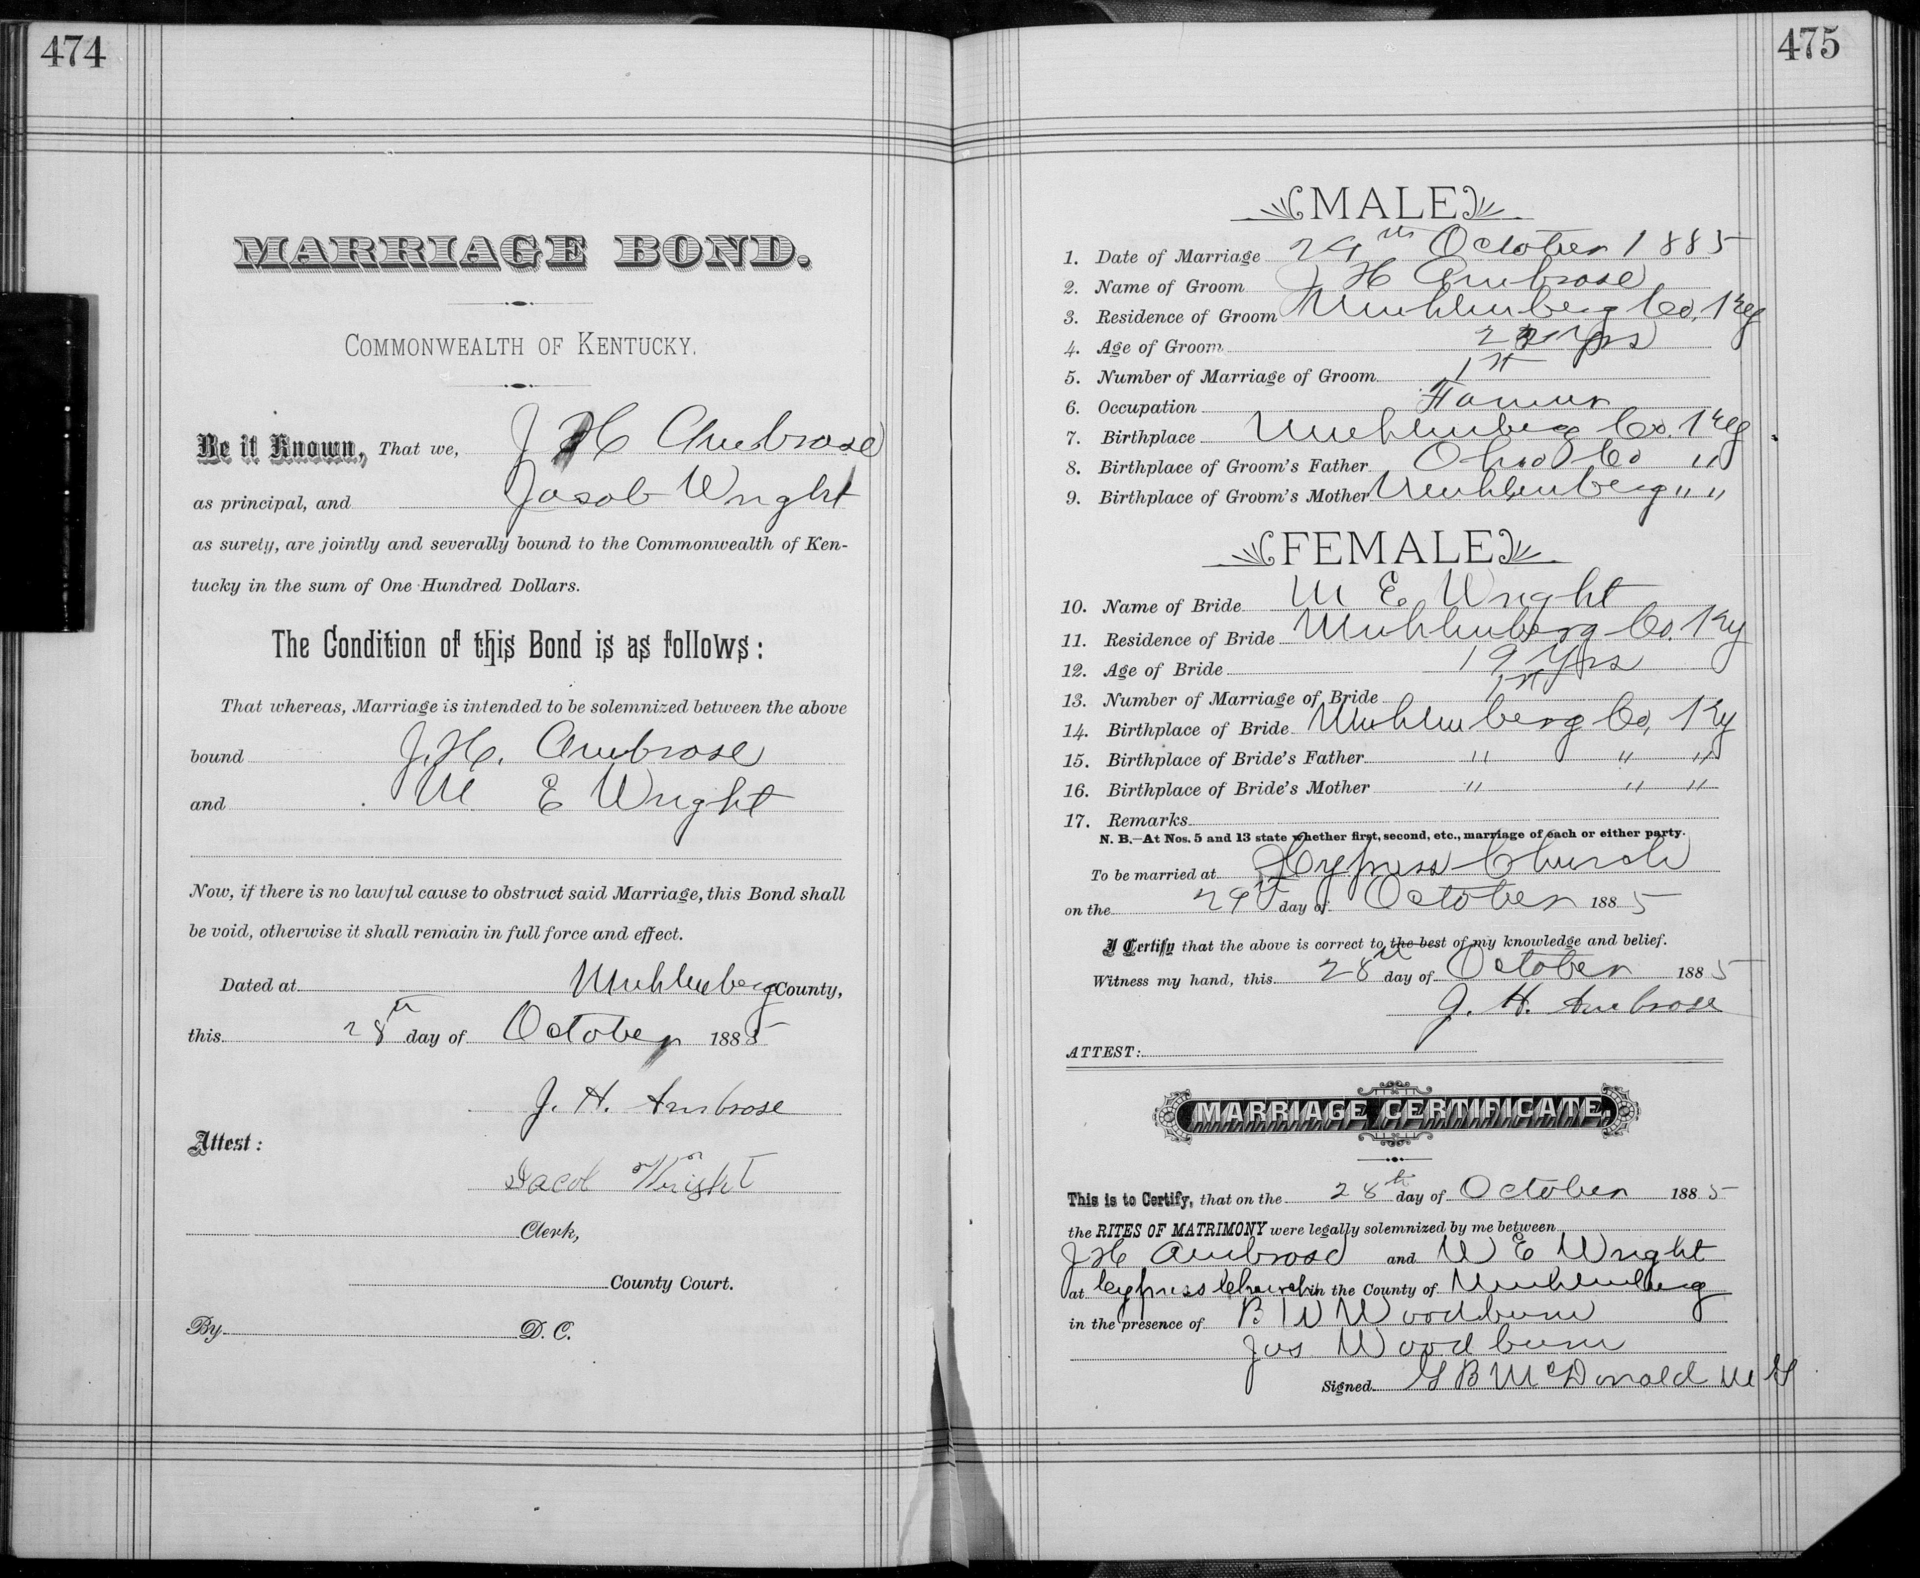 474
MARRIAGE BOND.
COMMONWEALTH OF KENTUCKY.
Be it Known, That we, J H Ambrose
as principal, and Jacob Wright
as surety, are jointly and severally bound to the Commonwealth of Ken-
tucky in the sum of One Hundred Dollars.
The Condition of this Bond is as follows:
That whereas, Marriage is intended to be solemnized between the above
bound J. H. Ambrose
and M E Wright
Now, if there is no lawful cause to obstruct said Marriage, this Bond shall
be void, otherwise it shall remain in full force and effect.
Dated at Muhlenberg County,
this 28th day of October 1885
J. H. Ambrose
Attest:
Jacob Wright
Clerk,
County Court.
By D. C.
475
MALE
1. Date of Marriage 29th October 1885
2. Name of Groom J H Ambrose
3. Residence of Groom Muhlenberg Co, Ky
4. Age of Groom Yrs
5. Number of Marriage of Groom 1st
6. Occupation Farmer
7. Birthplace Muhlenberg Co. Ky
8. Birthplace of Groom's Father Ohio Co "
9. Birthplace of Groom's Mother Muhlenberg " "
FEMALE
10. Name of Bride M E Wright
11. Residence of Bride Muhlenberg Co, Ky
12. Age of Bride 19 Yrs
13. Number of Marriage of Bride 1st
14. Birthplace of Bride Muhlenberg Co, Ky
15. Birthplace of Bride's Father " " "
16. Birthplace of Bride's Mother " " "
17. Remarks
N. B.—At Nos. 5 and 13 state whether first, second, etc., marriage of each or either party.
To be married at Cypress Church
on the 29th day of October 1885
I Certify that the above is correct to the best of my knowledge and belief.
Witness my hand, this 28th day of October 1885
J. H. Ambrose
ATTEST:
MARRIAGE CERTIFICATE.
This is to Certify, that on the 28th day of October 1885
the RITES OF MATRIMONY were legally solemnized by me between
J H Ambrose and M E Wright
at Cypress Church in the County of Muhlenberg
in the presence of B W Woodburn
Jas Woodburn
Signed G B McDonald M G